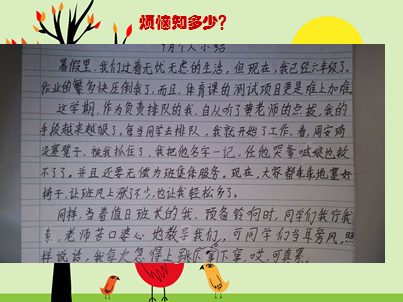 烦恼知多少?
个人小结
暑假里,我们过着无忧无虑的生活,但现在,我已经六年级了。
作业的繁多快压倒我了,而且,体育课的测试项目更是难上加难。
这学期,作为负责排队的我,自从听了黄老师的点拔,我的
手段越来越狠了。每当同学去排队,我就开始了工作,看,周安琦
没塞凳子,被我抓住了,我把他名字一记,任他哭爹喊娘也救
不了了。并且还要无偿为班集体服务。现在,大家都乖乖地塞好
椅子,让班风上涨了不少,也让我轻松多了。
同样,当着值日班长的我,预备铃响时,同学们我行我
素。老师苦口婆心地教导我们,可同学们当耳旁风,照
样说话,我在火急得上跳下窜,哎,可真累。